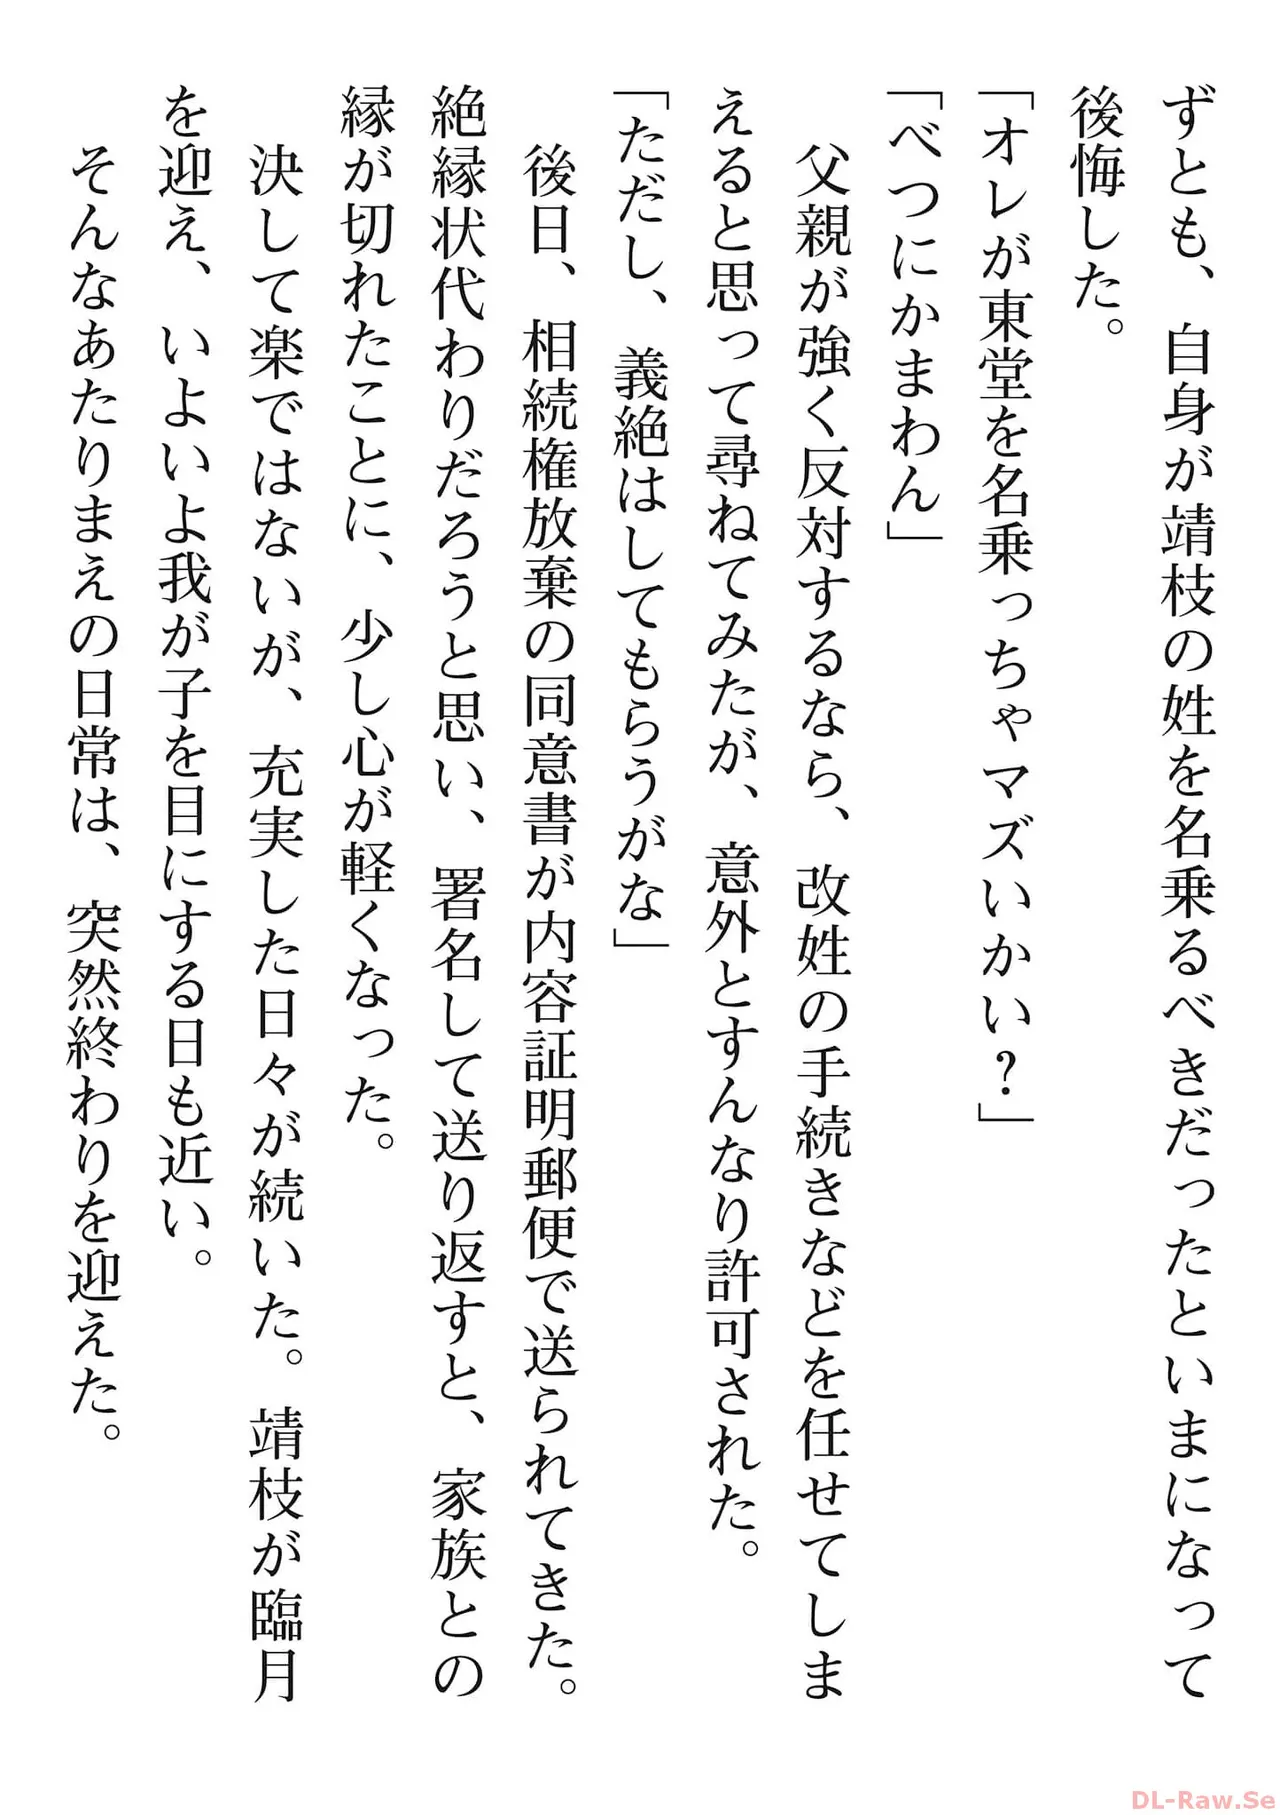 ずとも、自身が靖枝の姓を名乗るべきだったといまになって
後悔した。
「オレが東堂を名乗っちゃマズいかい？」
「べつにかまわん」
父親が強く反対するなら、改姓の手続きなどを任せてしま
えると思って尋ねてみたが、意外とすんなり許可された。
「ただし、義絶はしてもらうがな」
後日、相続権放棄の同意書が内容証明郵便で送られてきた。
絶縁状代わりだろうと思い、署名して送り返すと、家族との
縁が切れたことに、少し心が軽くなった。
決して楽ではないが、充実した日々が続いた。靖枝が臨月
を迎え、いよいよ我が子を目にする日も近い。
そんなあたりまえの日常は、突然終わりを迎えた。
DL-Raw.Se